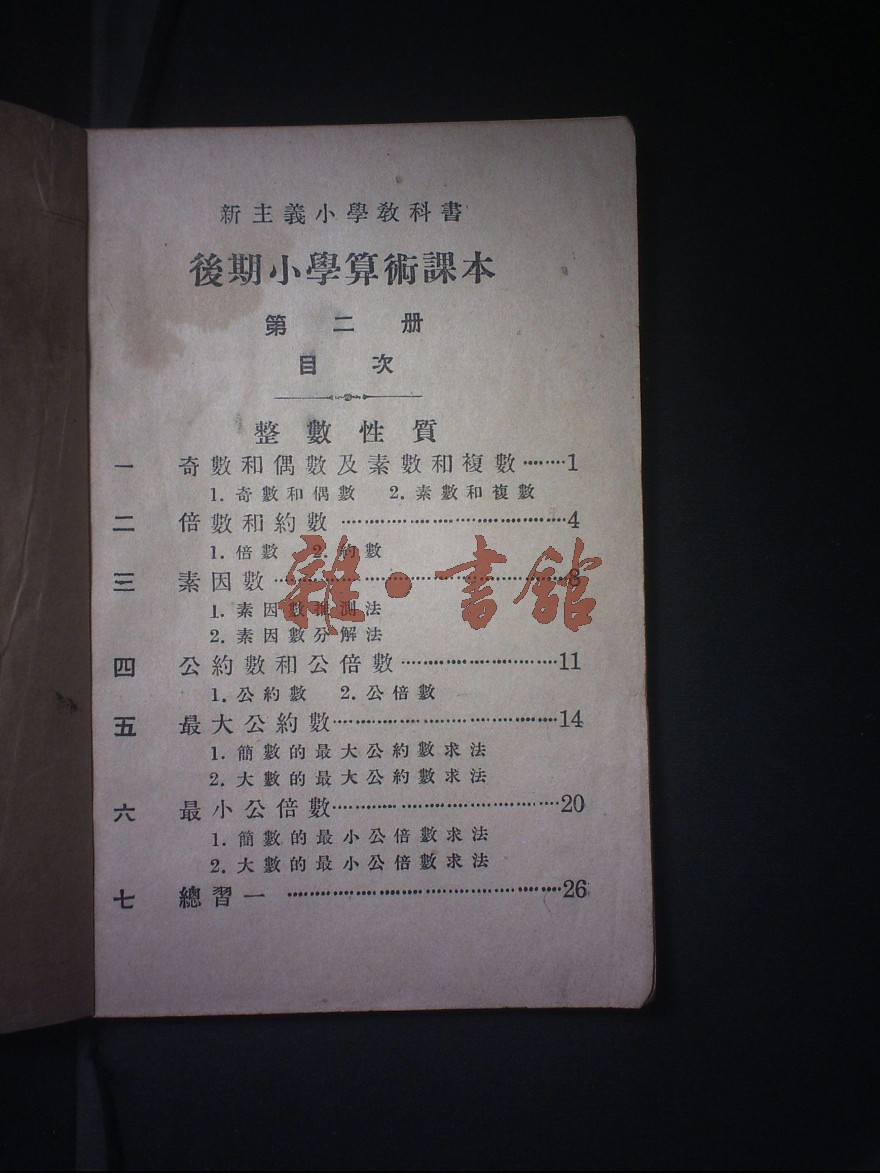 新主義小學教科書
後期小學算術課本
第二册
目次
整數性質
一 奇數和偶數及素數和複數········1
1. 奇數和偶數 2. 素數和複數
二 倍數和約數········4
1. 倍數 2. 約數
三 素因數········8
1. 素因數推測法
2. 素因數分解法
四 公約數和公倍數········11
1. 公約數 2. 公倍數
五 最大公約數········14
1. 簡數的最大公約數求法
2. 大數的最大公約數求法
六 最小公倍數········20
1. 簡數的最小公倍數求法
2. 大數的最小公倍數求法
七 總習一········26
雜·書館